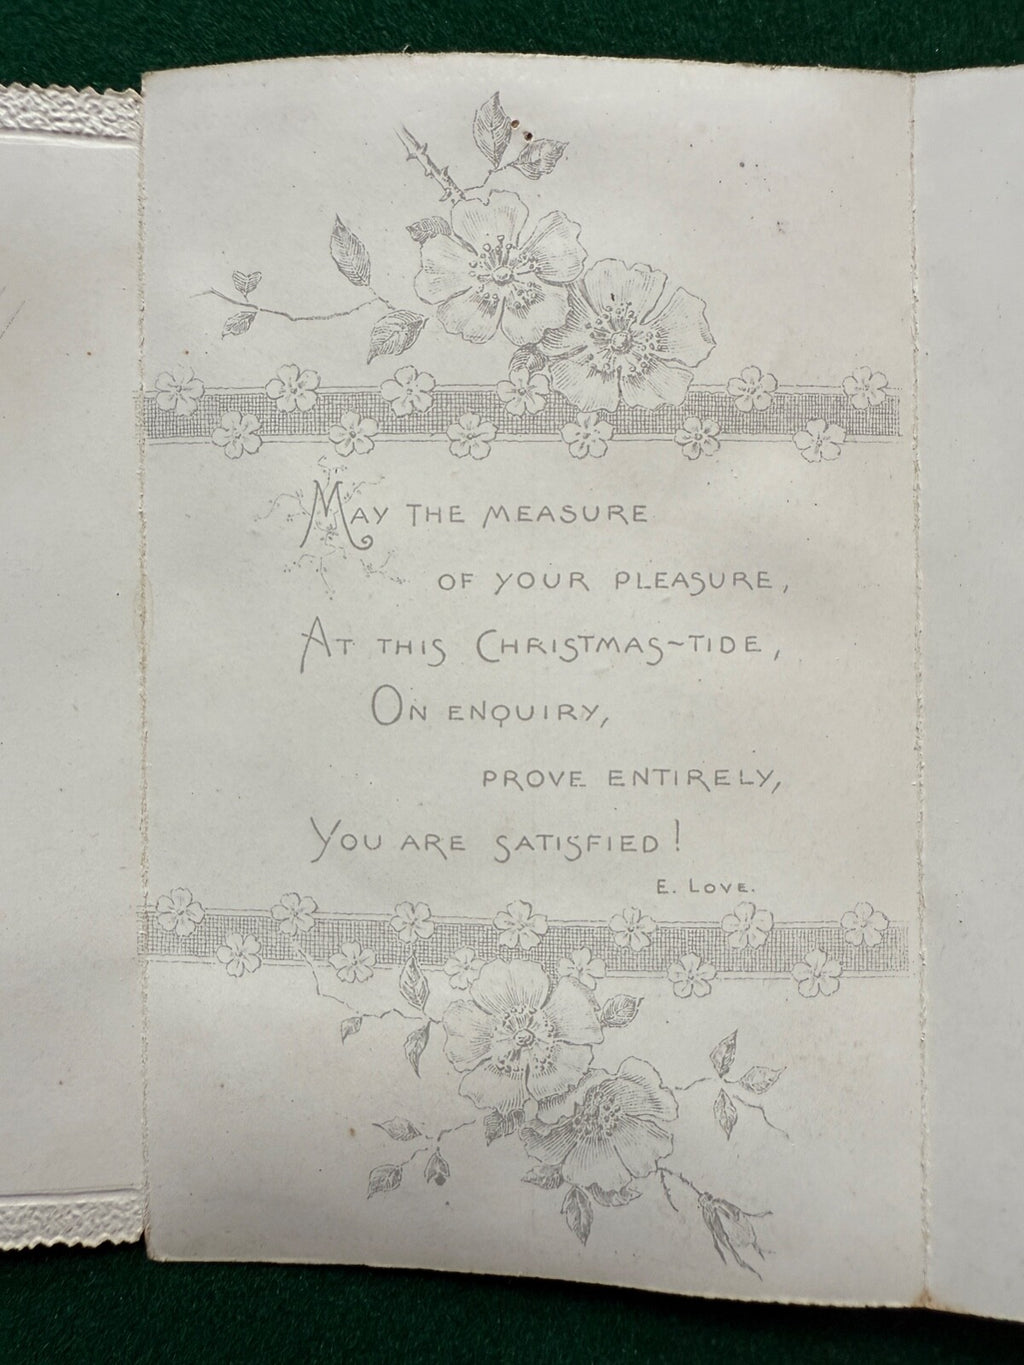 May the measure
of your pleasure,
At this Christmas~tide,
On enquiry,
prove entirely,
You are satisfied!
E. Love.